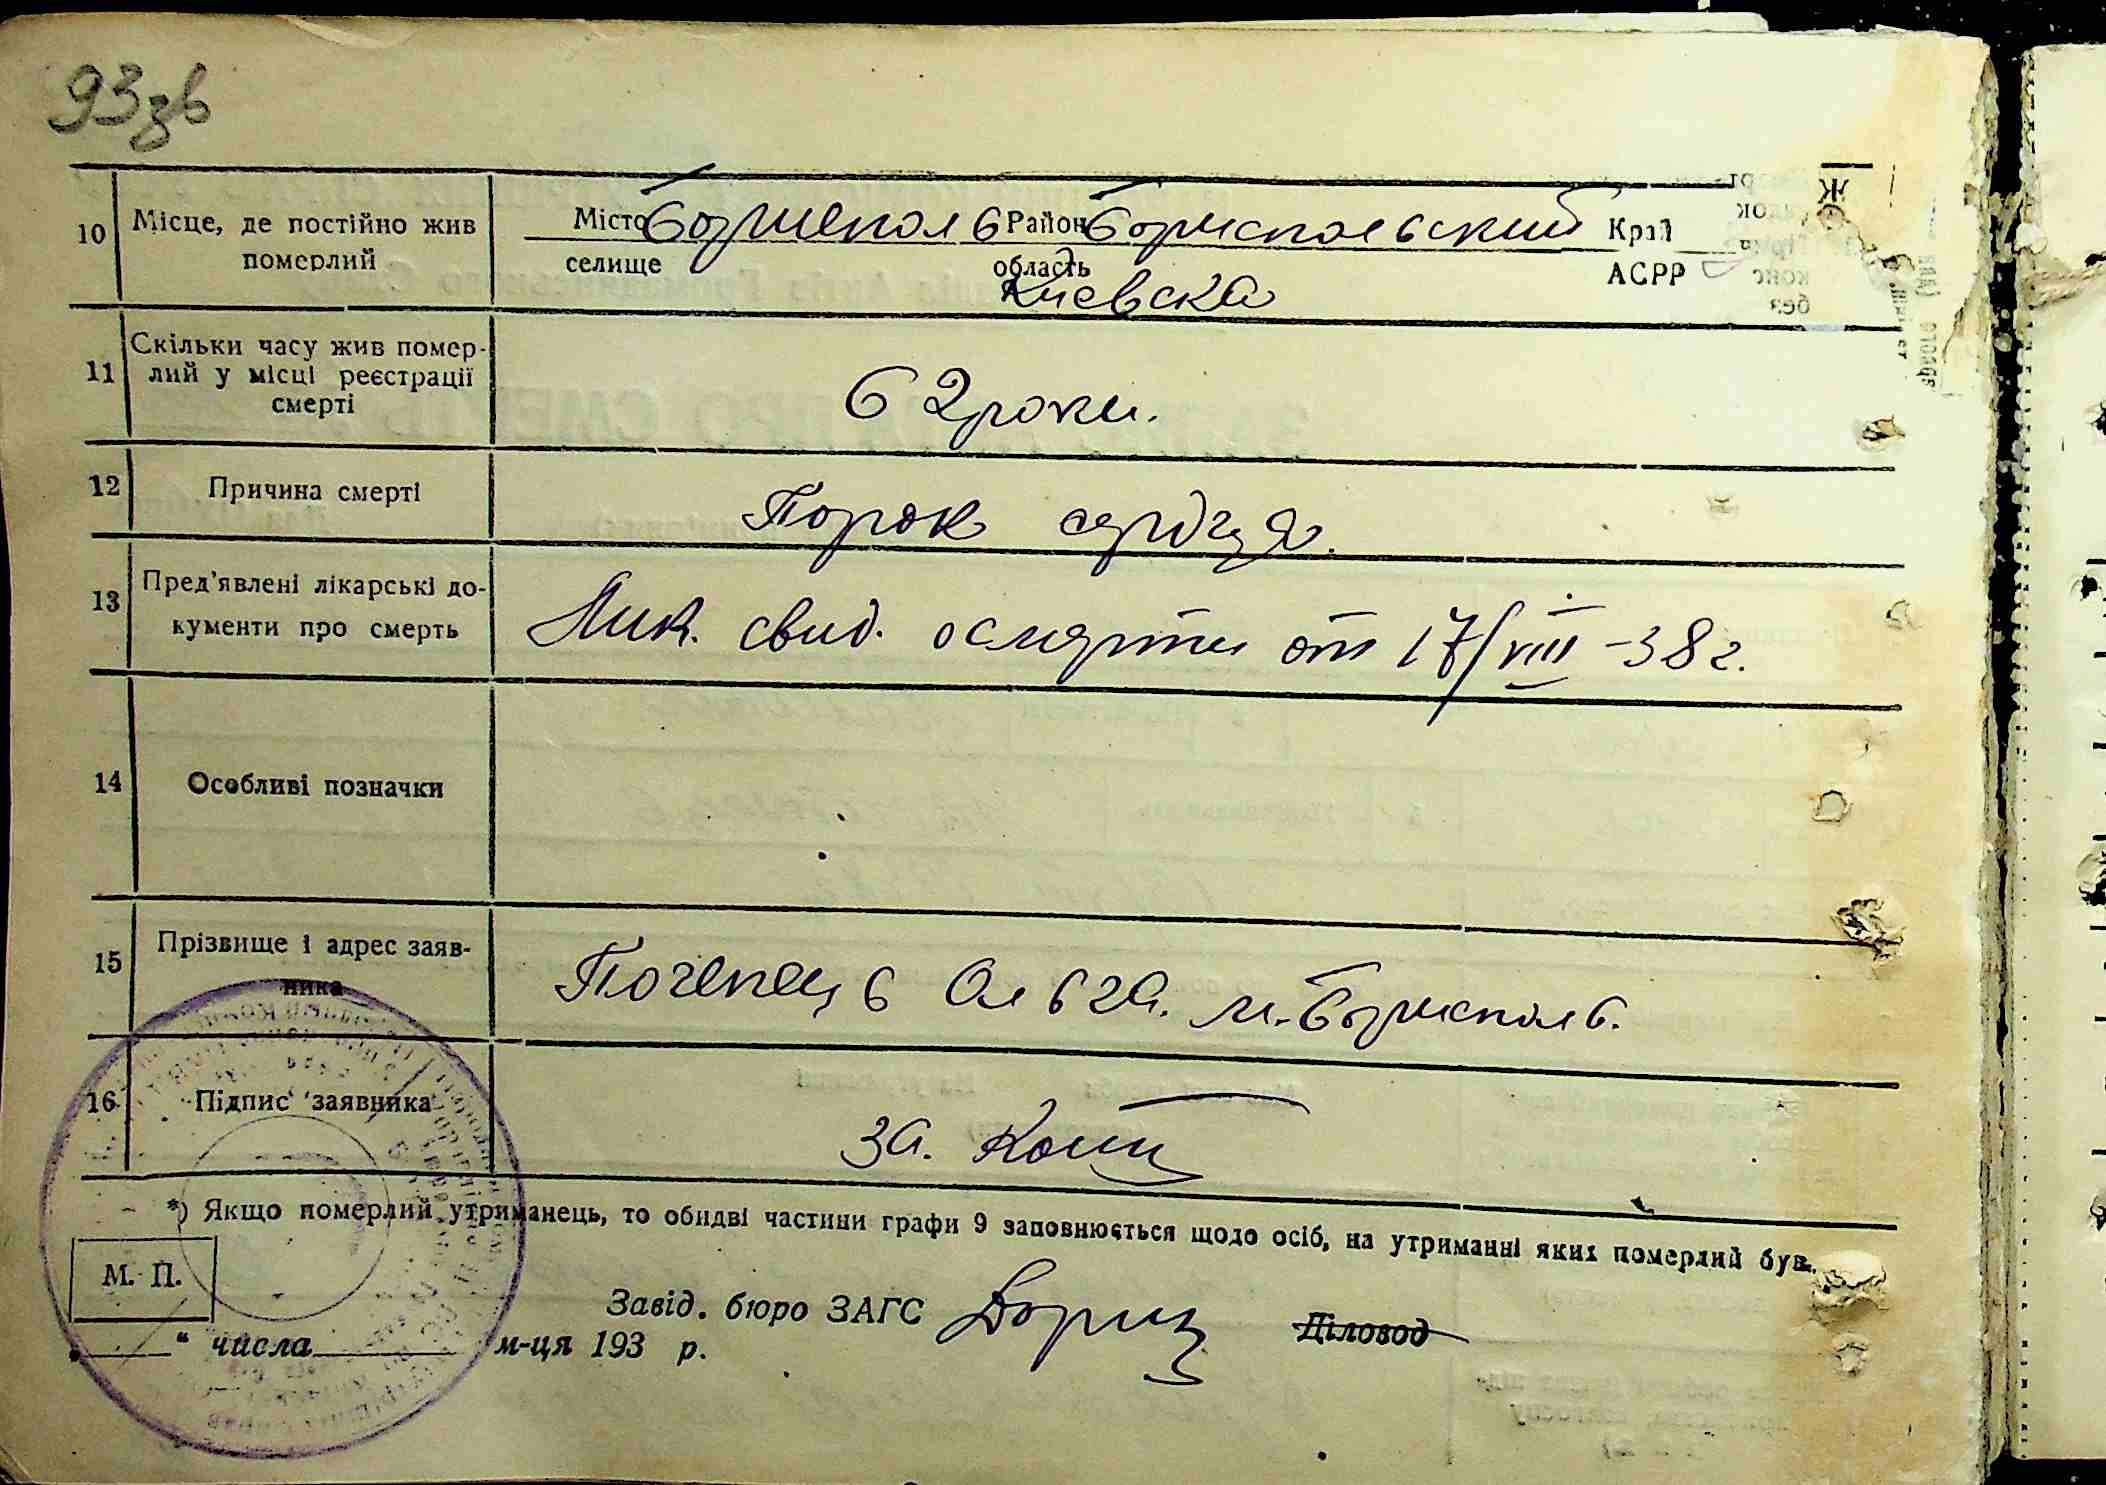 93зв
10 Місце, де постійно жив Місто Бориспіль Район Бориспольский Край
померлий селище область АСРР
Киевска
11 Скільки часу жив помер-
лий у місці реєстрації
смерті
62 роки.
12 Причина смерті Порок сердця.
13 Пред'явлені лікарські до-
кументи про смерть
Лик. свид. осмерти от 17/VIII-38г.
14 Особливі позначки
15 Прізвище і адрес заяв-
ника
Почепець Ольга. м. Бориспіль.
16 Підпис заявника За.
*) Якщо померлий утриманець, то обидві частини графи 9 заповнюється щодо осіб, на утриманні яких померлий був.
М. П.
Завід. бюро ЗАГС Діловод
„ “ числа м-ця 193 р.